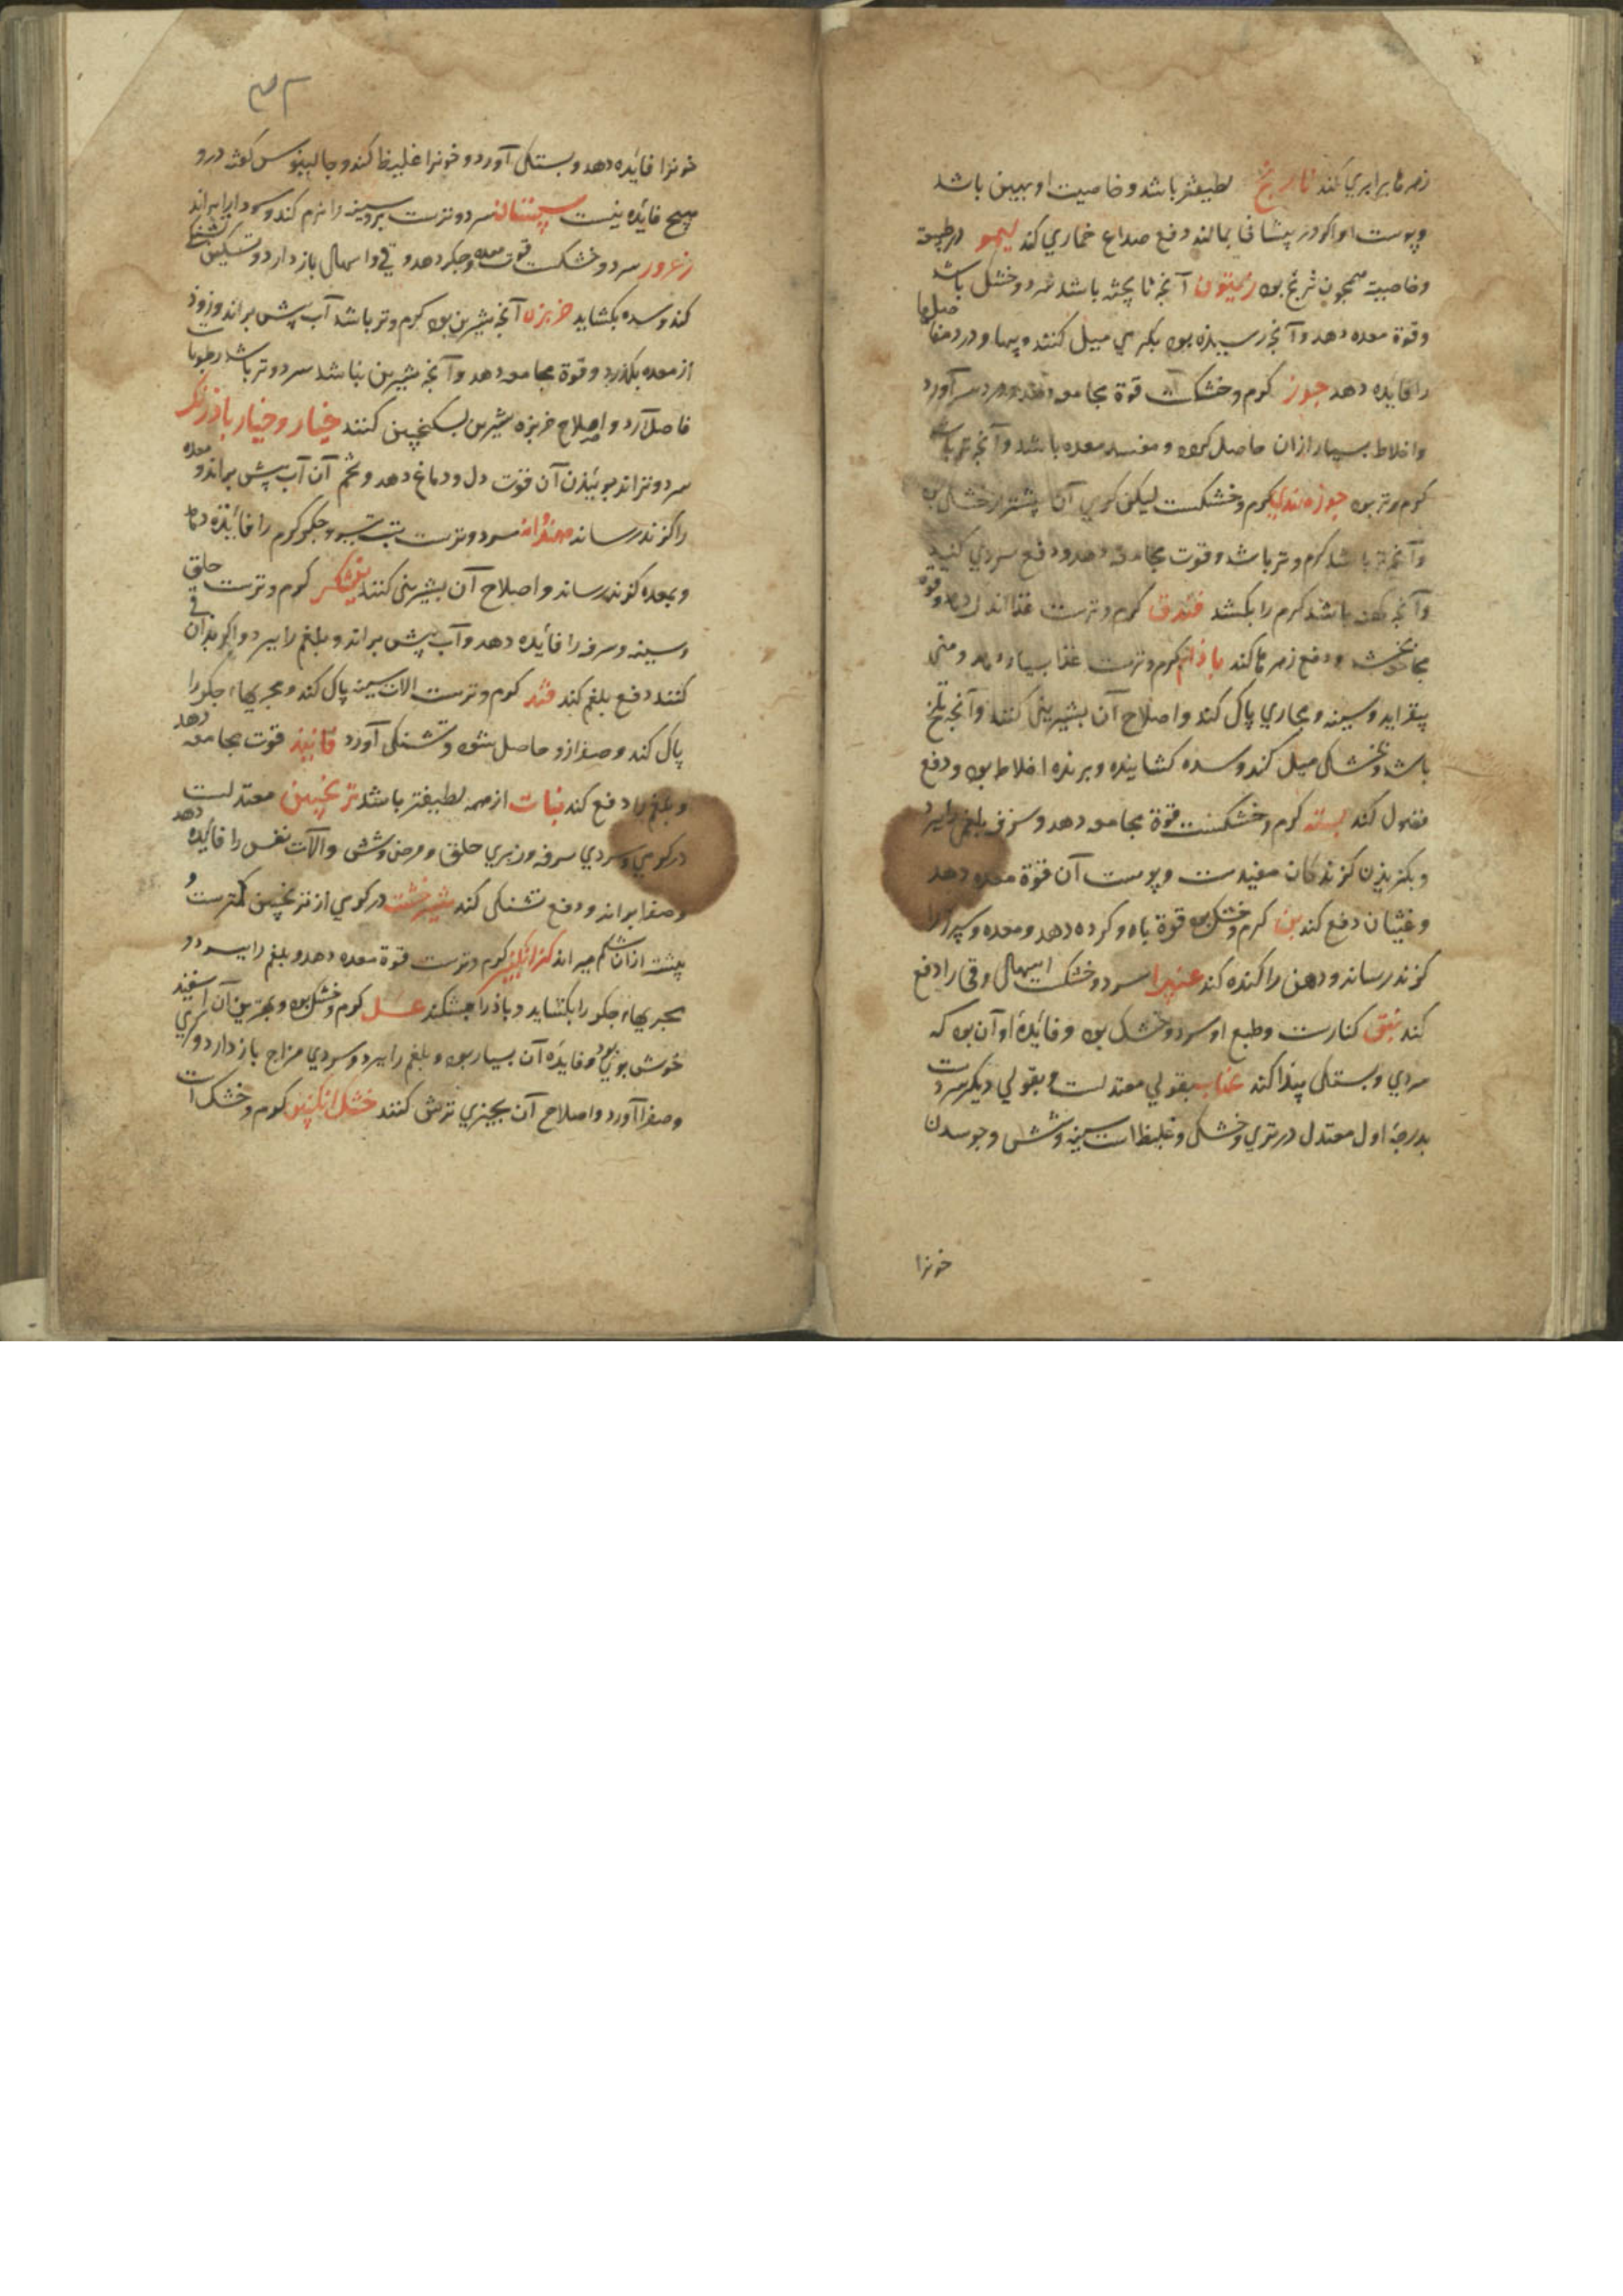 زهرها برابری کند نارنج لطیفتر باشد و خاصیت او همین باشد
و پوست او اکر در پیشانی بمالند دفع صداع خماری کند لیمو در طبیعت
و خاصیت همچون ترنج بود زیتون آنچ ناپخته باشد سرد و خشک باشد
و قوة معده دهد و آنچ رسیده بود بکرمی میل کنند و پیها و درد مفاصلها
را فایده دهد جوز کرم و خشک است قوة مجامعه دهد و درد سر آورد
و اخلاط بسیار ازان حاصل کردد و مفسد معده باشد و آنچ تر باشد
کرم و تر بود جوز هندی کرم و خشکست لیکن کرمی آن بیشتر از خشکی بود
و آنچ تر باشد کرم و تر باشد و قوت مجامعه دهد و دفع سردی کند
و آنچ کهن باشد کرم را بکشد فندق کرم و ترست غذا اندک دهد و قوة
مجامعت بخشد و دفع زهرها کند باذام کرم و ترست غذا بسیار دهد و منی
بیفزاید و سینه و مجاری پاک کند و اصلاح آن بشیرینی کنند و آنچ تلخ
باشد بخشکی میل کند و سده کشاینده و برنده اخلاط بود و دفع
فضول کند پسته کرم و خشکست قوة مجامعه دهد و سرفه بلغمی را ببرد
و بکزیدن کزندکان مفیدست و پوست آن قوة معده دهد
و غثیان دفع کند بن کرم و خشک بود قوة باه و کرده دهد و معده و سپرز را
کزند رساند و دهن را کنده کند غبیرا سرد و خشکست اسهال و قی را دفع
کند نبق کنارست و طبع او سرد و خشک بود و فائدة او آن بود که
سردی و بستکی پیدا کند عناب بقولی معتدلست و بقولی دیکر سردست
بدرجه اول معتدل در تری و خشکی و غلیظ است سینه و شش و جوسدن
خونرا
خونرا فائده دهد و بستکی آورد و خونرا غلیظ کند و جالینوس کفته درو
هیچ فائده نیست سپستان سرد و ترست سینه را نرم کند و سودا براند
زعرور سرد و خشکست قوت معده و جکر دهد و قی و اسهال باز دارد و تسکین تشنکی
کند و سده بکشاید خربزه آنچ شیرین بود کرم و تر باشد آب پش براند و زود
از معده بکذرد و قوة مجامعه دهد و آنچ شیرین نباشد سرد و تر باشد رطوبات
حاصل آرد و اصلاح خربزه شیرین بسکنجبین کنند خیار و خیار باذرنک
سرد و تراند بوئیدن آن قوت دل و دماغ دهد و تخم آن آب پش براند و معده
را کزند رساند هندوانه سرد و ترست تب تیز و جکر کرم را فائده دهد
و بمعده کزند رساند و اصلاح آن بشیرینی کنند نیشکر کرم و ترست حلق
و سینه و سرفه را فائده دهد و آب پیش براند و بلغم را ببرد و اکر بدان قی
کنند دفع بلغم کند قند کرم و ترست الات سینه پاک کند و مجریهاء جکر را
پاک کند و صفرا ازو حاصل شود و تشنکی آورد فانیذ قوت مجامعه دهد
و بلغم را دفع کند نبات از همه لطیفتر باشد ترنجبین معتدلست
در کرمی و سردی سرفه و زبری حلق و مرض و شش و آلات نفس را فائده دهد
و صفرا براند و دفع تشنکی کند شیرخشت در کرمی از ترنجبین کمترست و
بیشتر ازان شکم میراند کزانکبین کرم و ترست قوة معده دهد و بلغم را ببرد و
مجریهاء جکر را بکشاید و باذ را بشکند عسل کرم و خشک بود و بهترین آن اسفید
خوش بوی بود و فایده آن بسیار بود و بلغم را ببرد و سردی مزاج باز دارد و کرمی
و صفرا آورد و اصلاح آن بچیزی ترش کنند خشک انکبین کرم و خشک است